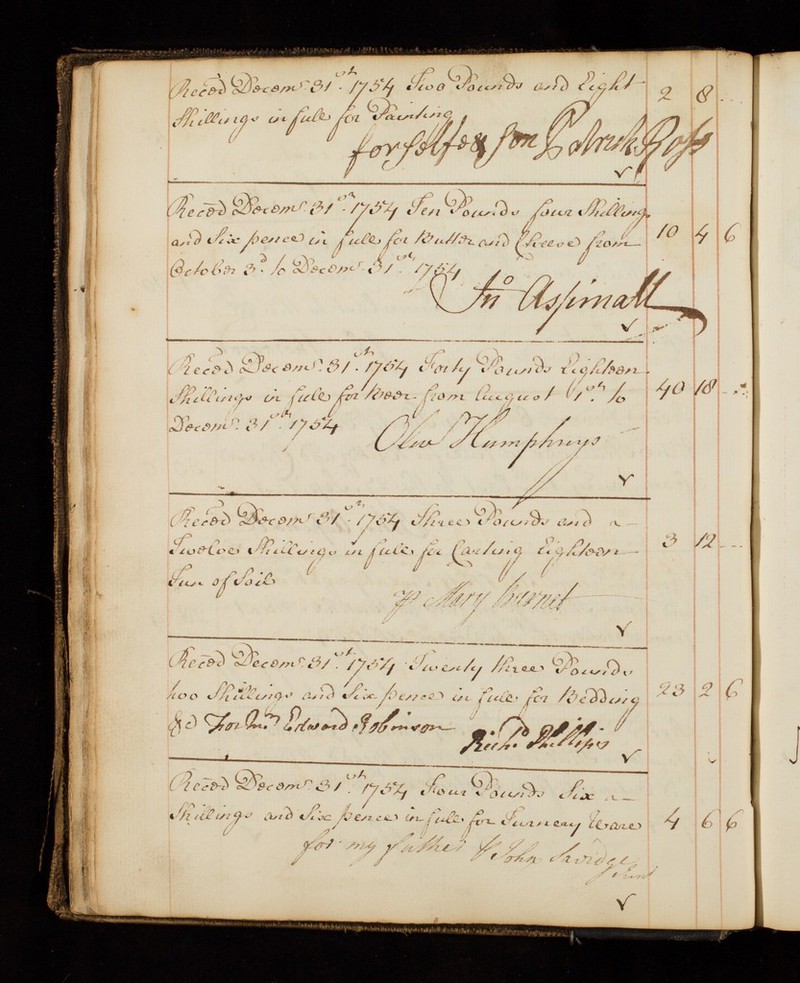 Recēd Decemr. 31st. 1754 Two Pounds and Eight 2 8 ..
Shillings in full for Painting
for Selfe & Son Patrick Ross
Recēd Decemr. 31st. 1754 Ten Pounds four Shillings
and Six pence in full for Butter and Cheese from 10 4 6
October 3d. to Decemr. 31st. 1754
Jno Aspinall
Recēd Decemr. 31st. 1754 Forty Pounds Eighteen
Shillings in full for Beer from August 1st. to 40 18 ..
Decemr. 31st. 1754
Olivr Humphreys
Recēd Decemr. 31st. 1754 Three Pounds and
Twelve Shillings in full for Carting Eighteen 3 12 ..
Tun of Soil
P Mary Burnet
Recēd Decemr. 31st. 1754 Twenty three Pounds
two Shillings and Six pence in full for Bedding 23 2 6
&c For Mr Edward Robinson
Richd Phillips
Recēd Decemr. 31st. 1754 Four Pounds Six
Shillings and Six pence in full for Turnery Ware 4 6 6
for my father P John Savidge
Junr